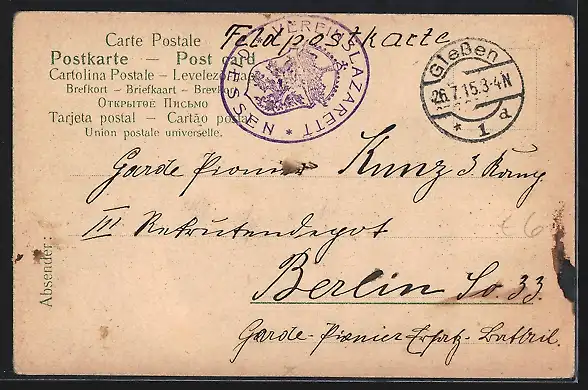 Carte Postale
Feldpostkarte
Postkarte — Post card
Cartolina Postale — Levelező
Brefkort — Briefkaart — Brevkort
Открытое Письмо
Tarjeta postal — Cartão postal
Union postale universelle.
VEREINSLAZARETT * NASSEN
Gießen
26.7.15.3-4N
* 1 d
Garde Pionier Kunz 3. Komp.
III Rekrutendepot
Berlin So. 33.
Garde-Pionier Ersatz-Battail.
Absender: